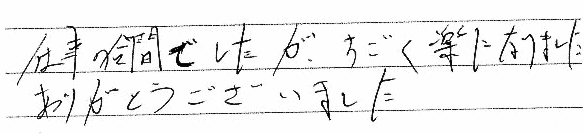 仕事の合間でしたが、すごく楽になりました
ありがとうございました